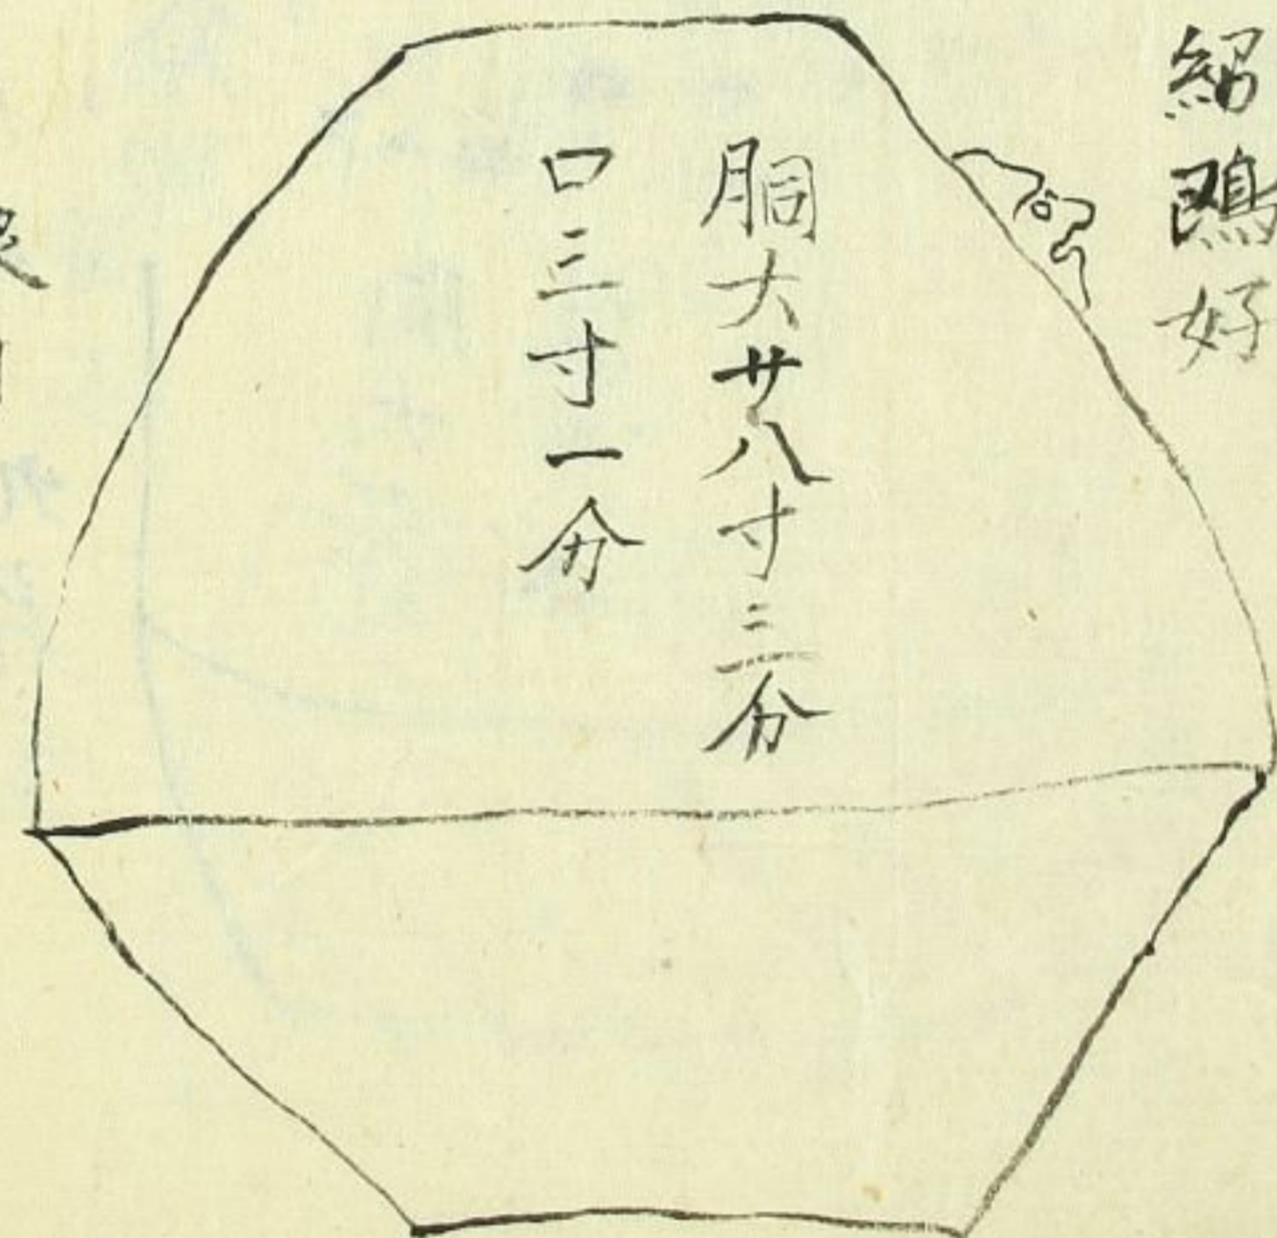 紹鴎好
胴大廿八寸三分
口三寸一分